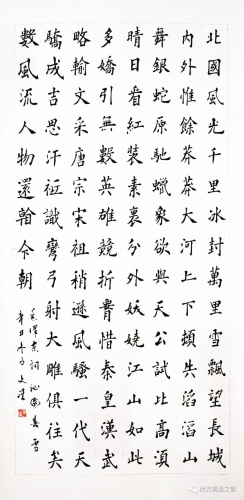 北國風光千里冰封萬里雪飄望長城
內外惟餘莽莽大河上下頓失滔滔山
舞銀蛇原馳蠟象欲與天公試比高須
晴日看紅裝素裹分外妖嬈江山如此
多嬌引無數英雄競折腰惜秦皇漢武
略輸文采唐宗宋祖稍遜風騷一代天
驕成吉思汗祗識彎弓射大雕俱往矣
數風流人物還看今朝
毛澤東詞沁園春雪
辛丑冬月文